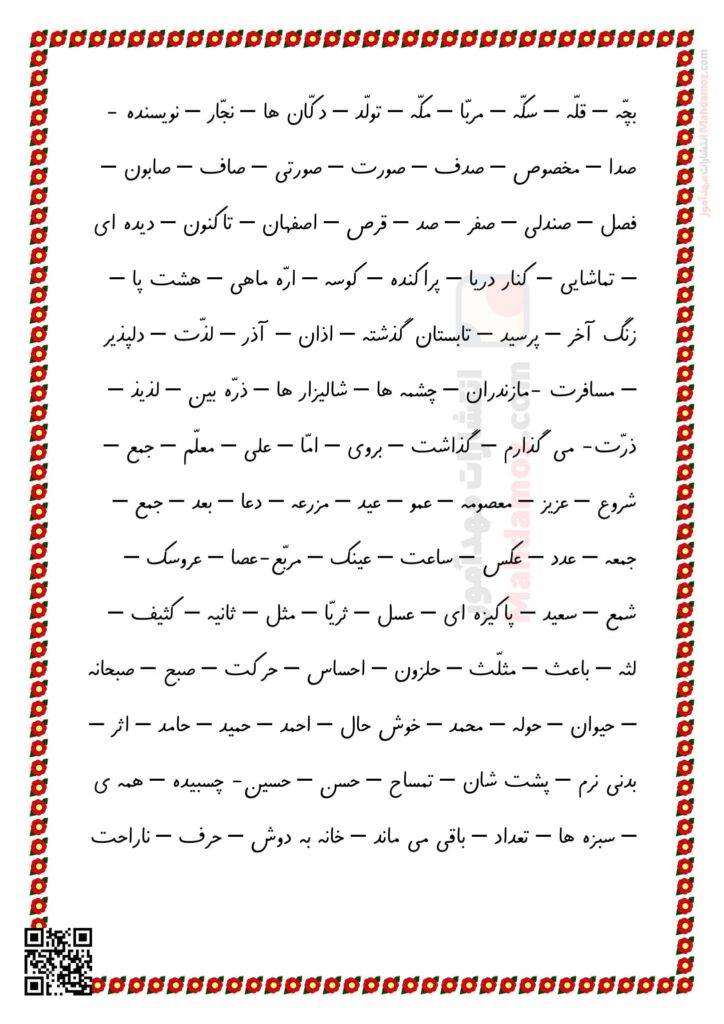 بچّه – قلّه – سکّه – مربّا – مکّه – تولّد – دکّان ها – نجّار – نویسنده -
صدا – مخصوص – صدف – صورت – صورتی – صاف – صابون –
فصل – صندلی – صفر – صد – قرص – اصفهان – تاکنون – دیده ای
– تماشایی – کنار دریا – پراکنده – کوسه – ارّه ماهی – هشت پا –
زنگ آخر – پرسید – تابستان گذشته – اذان – آذر – لذّت – دلپذیر
– مسافرت -مازندران – چشمه ها – شالیزار ها – ذرّه بین – لذیذ –
ذرّت- می گذارم – گذاشت – بروی – امّا – علی – معلّم – جمع –
شروع – عزیز – معصومه – عمو – عید – مزرعه – دعا – بعد – جمع –
جمعه – عدد – عکس – ساعت – عینک – مربّع-عصا – عروسک –
شمع – سعید – پاکیزه ای – عسل – ثریّا – مثل – ثانیه – کثیف –
لثه – باعث – مثلّث – حلزون – احساس – حرکت – صبح – صبحانه
– حیوان – حوله – محمد – خوش حال – احمد – حمید – حامد – اثر –
بدنی نرم – پشت شان – تمساح – حسن – حسین- چسبیده – همه ی
– سبزه ها – تعداد – باقی می ماند – خانه به دوش – حرف – ناراحت
انتشارات مهدآموز Mahdamoz.com
انتشارات مهدآموز
Mahdamoz.com